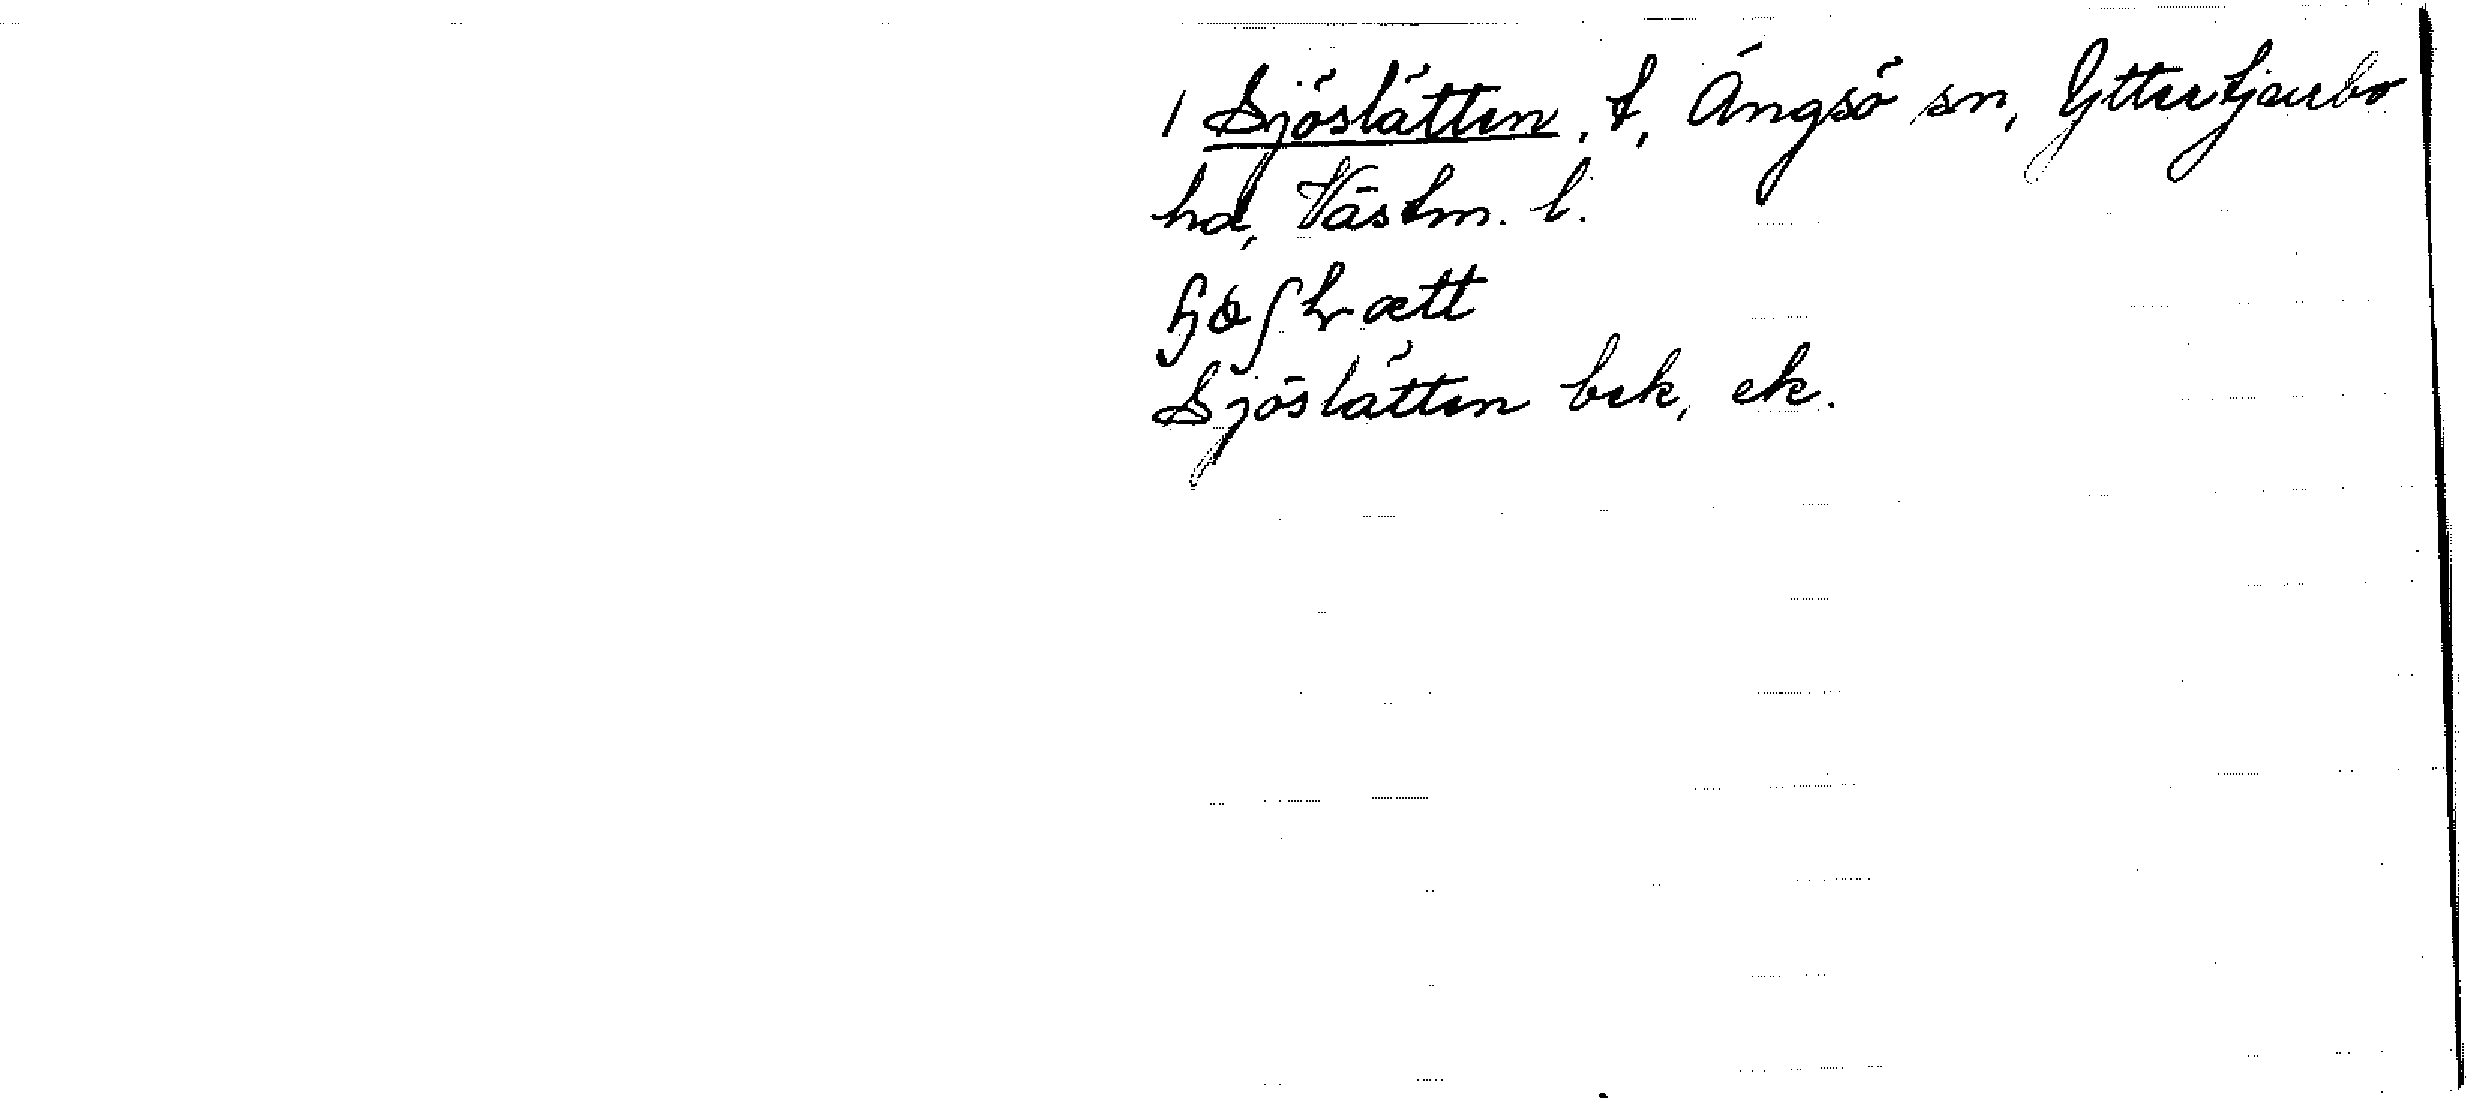 1 Sjöslätten, t, Ängsö sn, Yttertjurbo
hd, Västm. l.
Sjöslätten bek, ek.